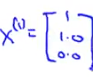 x⁽¹⁾ = [ 1
1.0
0.0 ]